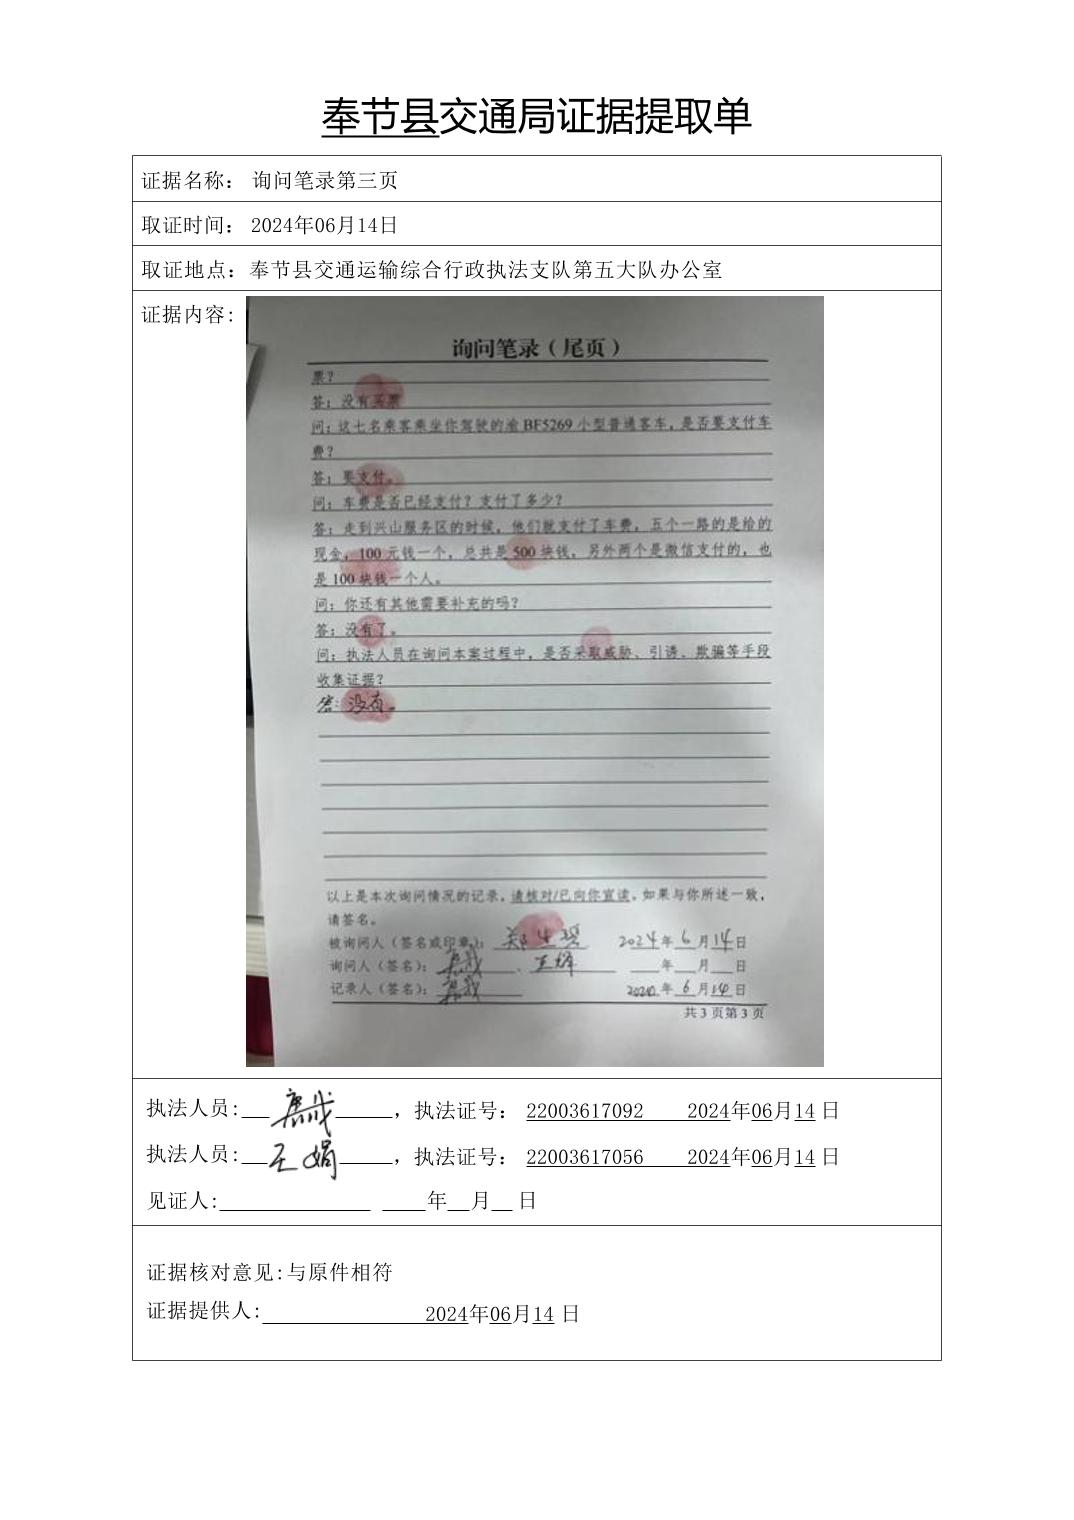 奉节县交通局证据提取单
证据名称： 询问笔录第三页
取证时间： 2024年06月14日
取证地点：奉节县交通运输综合行政执法支队第五大队办公室
证据内容:
询问笔录（尾页）
票？
答：没有买票
问：这七名乘客乘坐你驾驶的渝 BF5269 小型普通客车，是否要支付车
费？
答：要支付。
问：车费是否已经支付？支付了多少？
答：走到兴山服务区的时候，他们就支付了车费，五个一路的是给的
现金，100 元钱一个，总共是 500 块钱，另外两个是微信支付的，也
是 100 块钱一个人。
问：你还有其他需要补充的吗？
答：没有了。
问：执法人员在询问本案过程中，是否采取威胁、引诱、欺骗等手段
收集证据？
答：没有。
以上是本次询问情况的记录，请核对/已向你宣读，如果与你所述一致，
请签名。
被询问人（签名或印章）： 2024年 6 月 14 日
询问人（签名）： 年 月 日
记录人（签名）： 年 6 月 14 日
共 3 页第 3 页
执法人员: ，执法证号： 22003617092 2024年06月14 日
执法人员: 王娟 ，执法证号： 22003617056 2024年06月14 日
见证人: 年 月 日
证据核对意见:与原件相符
证据提供人: 2024年06月14 日